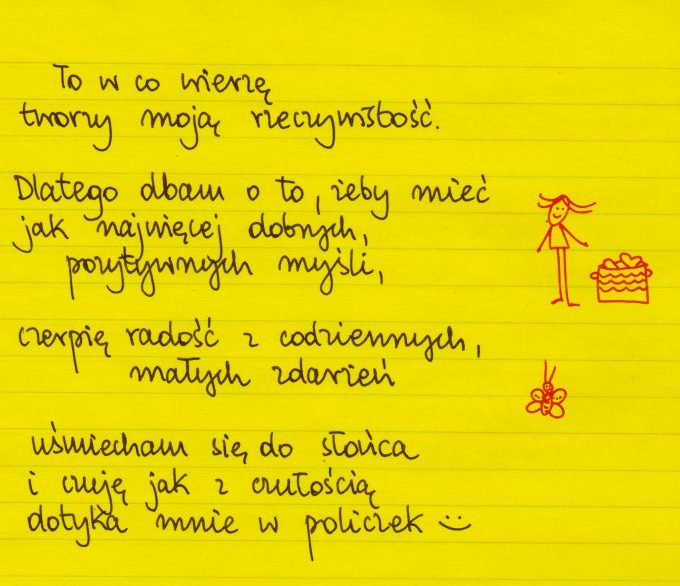 To w co wierzę
tworzy moją rzeczywistość.
Dlatego dbam o to, żeby mieć
jak najwięcej dobrych,
pozytywnych myśli,
czerpię radość z codziennych,
małych zdarzeń
uśmiecham się do słońca
i czuję jak z czułością
dotyka mnie w policzek :)